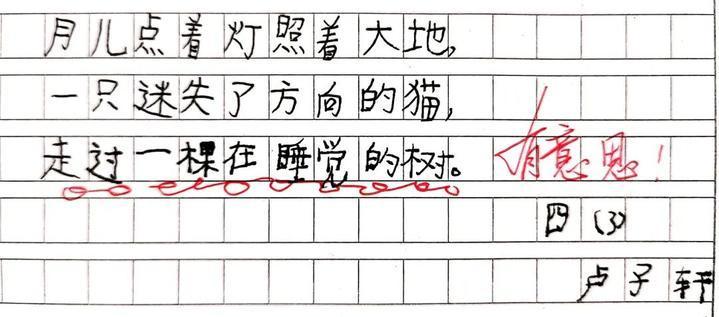 月儿点着灯照着大地，
一只迷失了方向的猫，
走过一棵在睡觉的树。
有意思！
四（3）
卢子轩